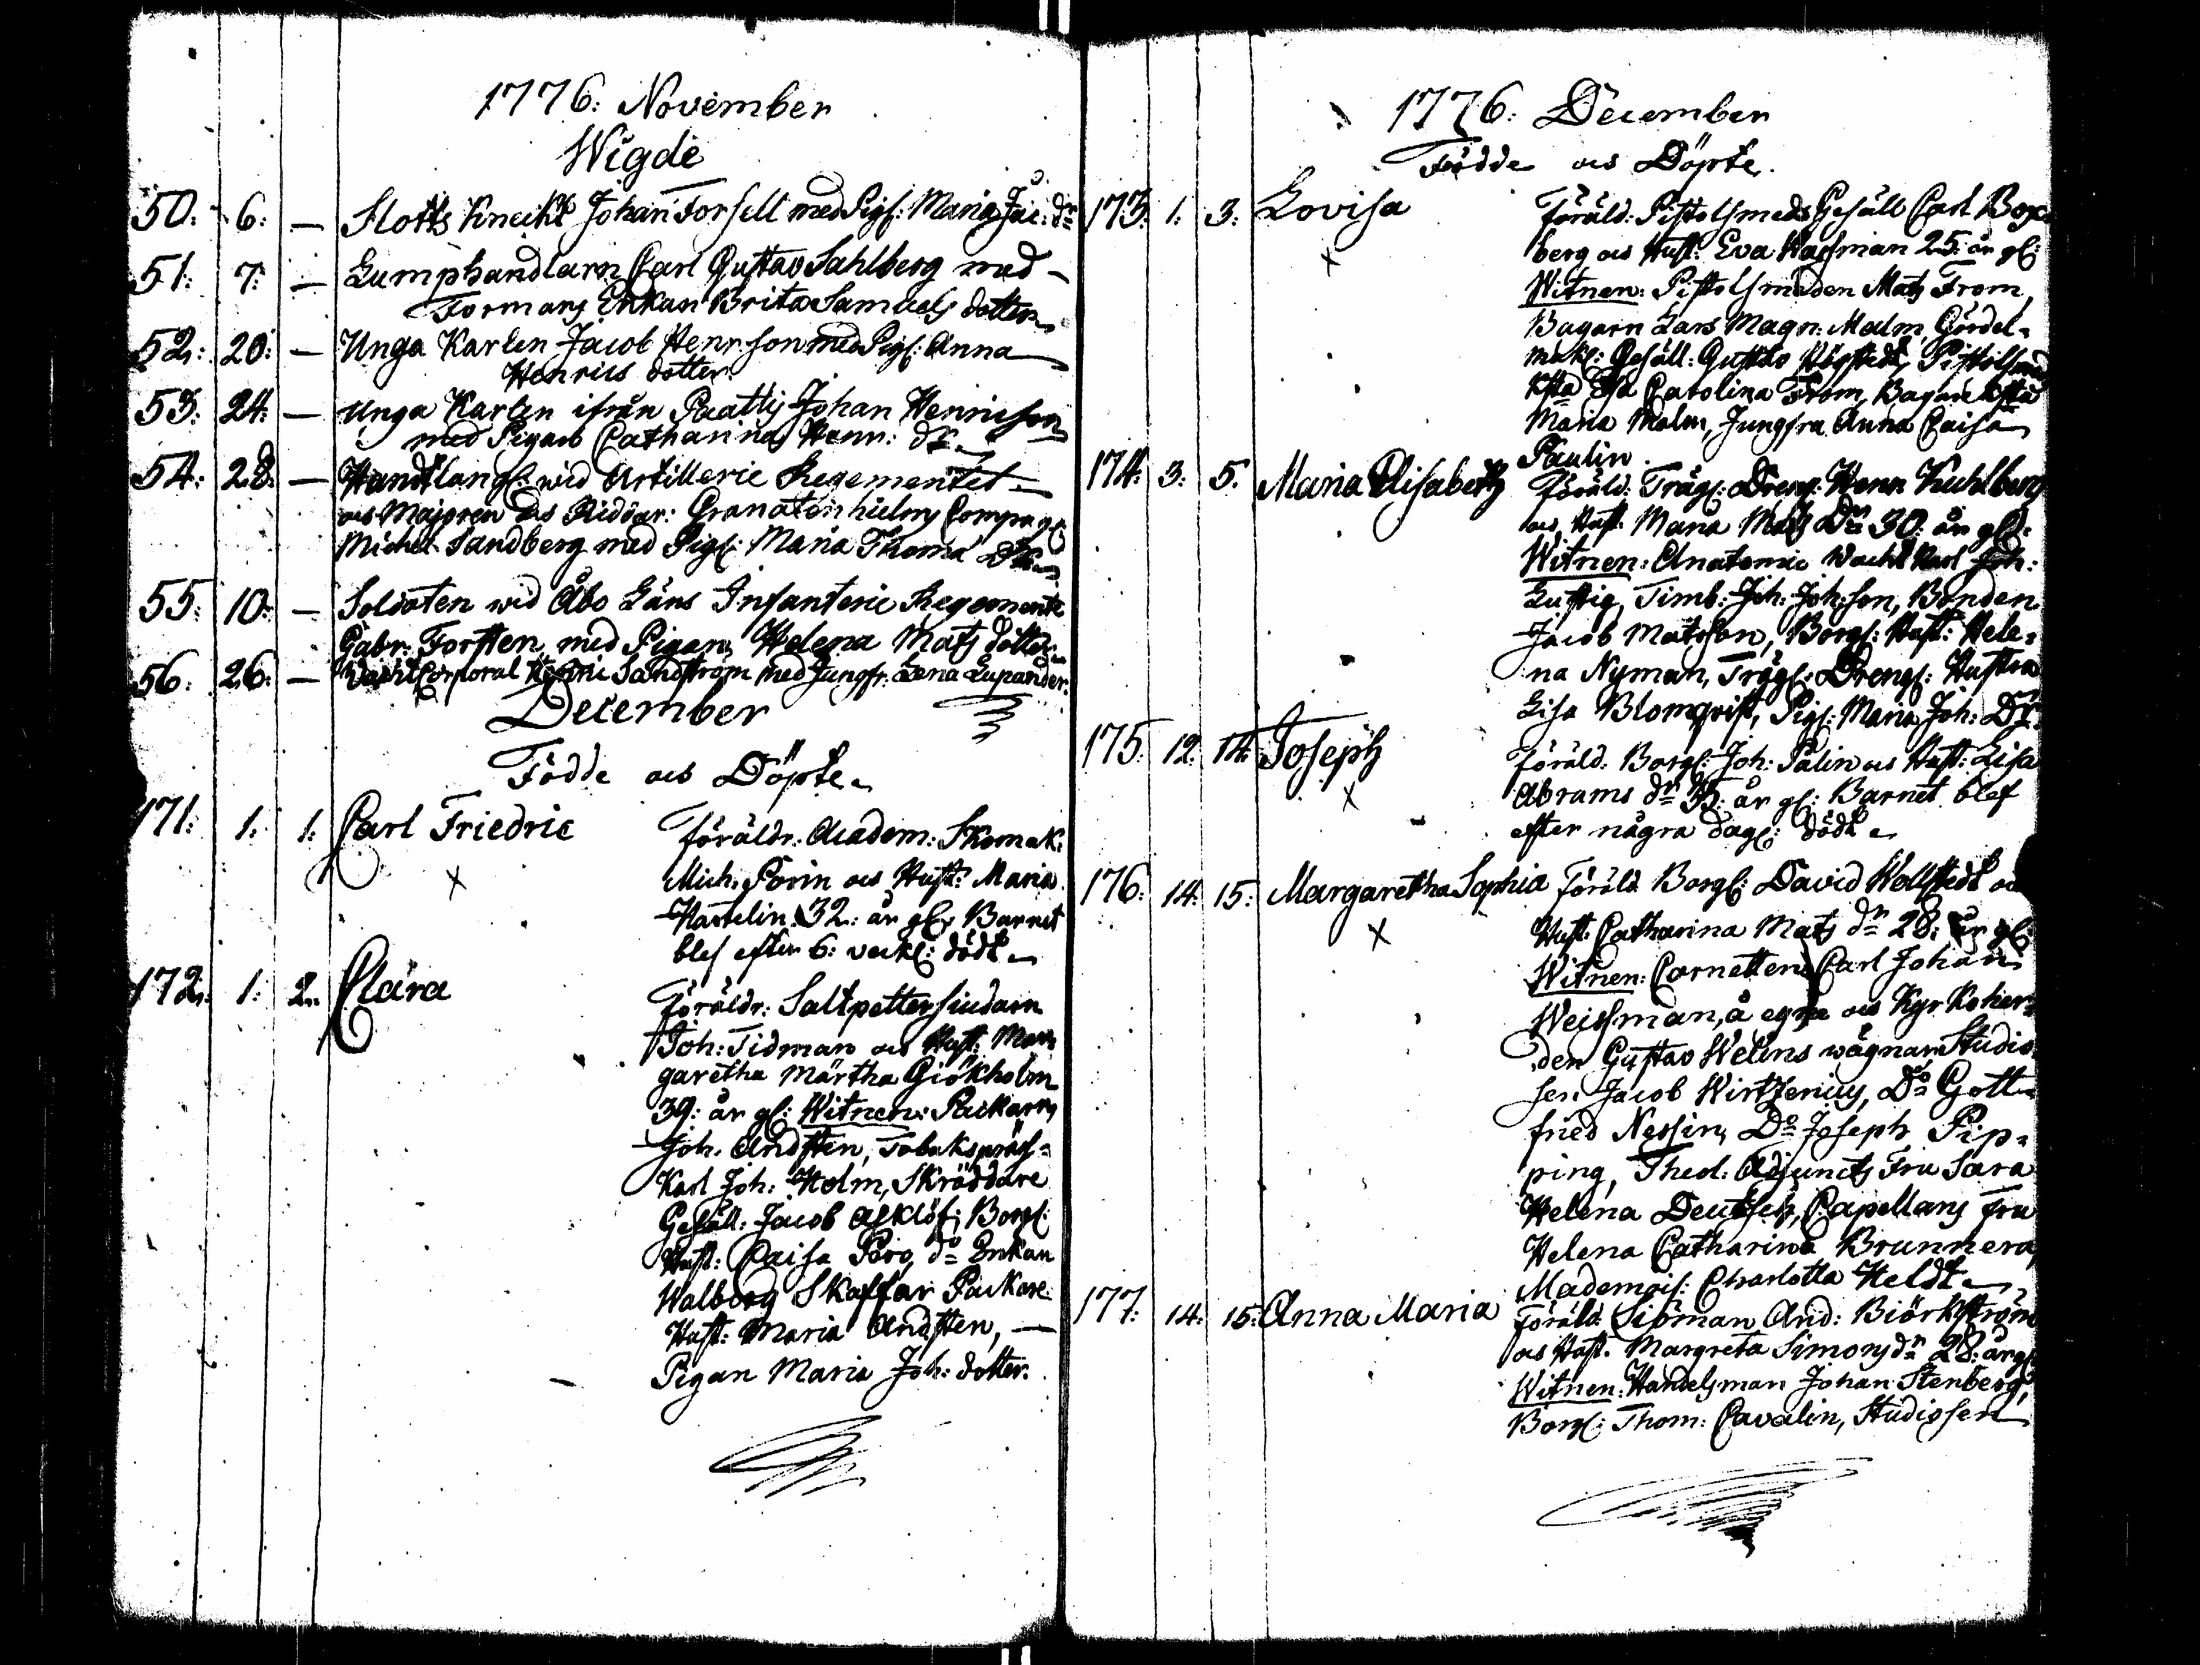 1776: November
Wigde
50: 6: — Slotts Kneckt Johan Forsell med Pigs: Maria Jac: dr
51: 7: — Lumphandlarn Carl Gustav Sahlberg med
Formans Enkan Brita Samuels dotter
52: 20: — Unga Karlen Jacob Henr.son med Pigs: Anna
Henrics dotter.
53: 24: — Unga Karlen ifrån Paattis Johan Henricson
med Pigan Catharina Henr: dr
54: 28. — Handtlang: wid Artillerie Regementet
ac Majoren Riddar: Granatenhielms Compag:
Michel Sandberg med Pigs: Maria Thomæ Dr
55: 10: — Soldaten wid Åbo Läns Infanterie Regemente
Gabr: Forsten med Pigan Helena Mats dotter
56: 26: — Wacht Corporal Henric Sandström med Jungfr: Lena Lupander.
December
Födde ac Döpte
171: 1: 1: Carl Friedric Föräldr: Academ: Skomak:
Mich. Porin ac Hust: Maria
32: år gl: Barnet
blef efter 6: veck: dödt
172: 1: 2: Clara Föräldr: Saltpettersiudarn
Joh: Tidman ac Hust: Mar
garetha Märtha Giökholm
39: år gl: Witnen: Packarn
Joh. Andsten, Tobaks
Karl Joh: Holm, Skräddare
Gesäll: Jacob Asklöf, Borgs:
Hust: Caisa do Enkan
Walborg Skaffar Packare
Hust: Maria Andsten, —
Pigan Maria Joh: dotter.
1776: December
Födde ac Döpte.
173: 1: 3: Lovisa Föräld: Pistolsmeds Gesäll Carl Box
berg ac Hust: Eva Wassman 25: år gl:
Witnen: Pistolsmeden Mats From,
Bagarn Lars Magn: Malm, Gördel=
mak: Gesäll: Gustav Högstedt, Pistolsmed
Carolina From, Bagare
Maria Malm, Jungfru Anna Caisa
Paulin.
174: 3: 5. Maria Elisabeth Föräld: Trägs: Dreng: Henr Kuhlberg
ac Hust: Maria Mats Dr 30: år gl:
Witnen: Anatomie Wacht Karl Joh:
Lustig, Timb: Joh: Joh:son, Bonden
Jacob Matsson, Borgs: Hust: Hele=
na Nyman, Trägs: Drengs: Hustru
Lisa Blomqvist, Pigs: Maria Joh: Dr.
175: 12: 14: Joseph Föräld: Borgs: Joh: Palin ac Hust: Lisa
Abrams dr 35: år gl: Barnet blef
efter några dag: dödt
176: 14: 15: Margaretha Sophia Föräld: Borgs: David Wellstedt ac
Hust: Catharina Mats dr 28: år gl:
Witnen: Cornetten Carl Johan
Weissman, å egne ac Kyrkoher=
den Gustav Welins wägnar, Studio
sen Jacob Wirtzenius, Do Gott=
fried Nessin, Do Joseph Pip=
ping, Theol: Adjuncts Fru Sara
Helena Deutsch, Capellans Fru
Helena Catharina Brunnera
Mademois: Charlotta Heldt
177: 14: 15: Anna Maria Föräld: Siöman And: Biörkström
ac Hust. Margreta Simons dr 28: år gl:
Witnen: Handelsman Johan Stenberg,
Borgs: Thom: Cavalin, Studiosen